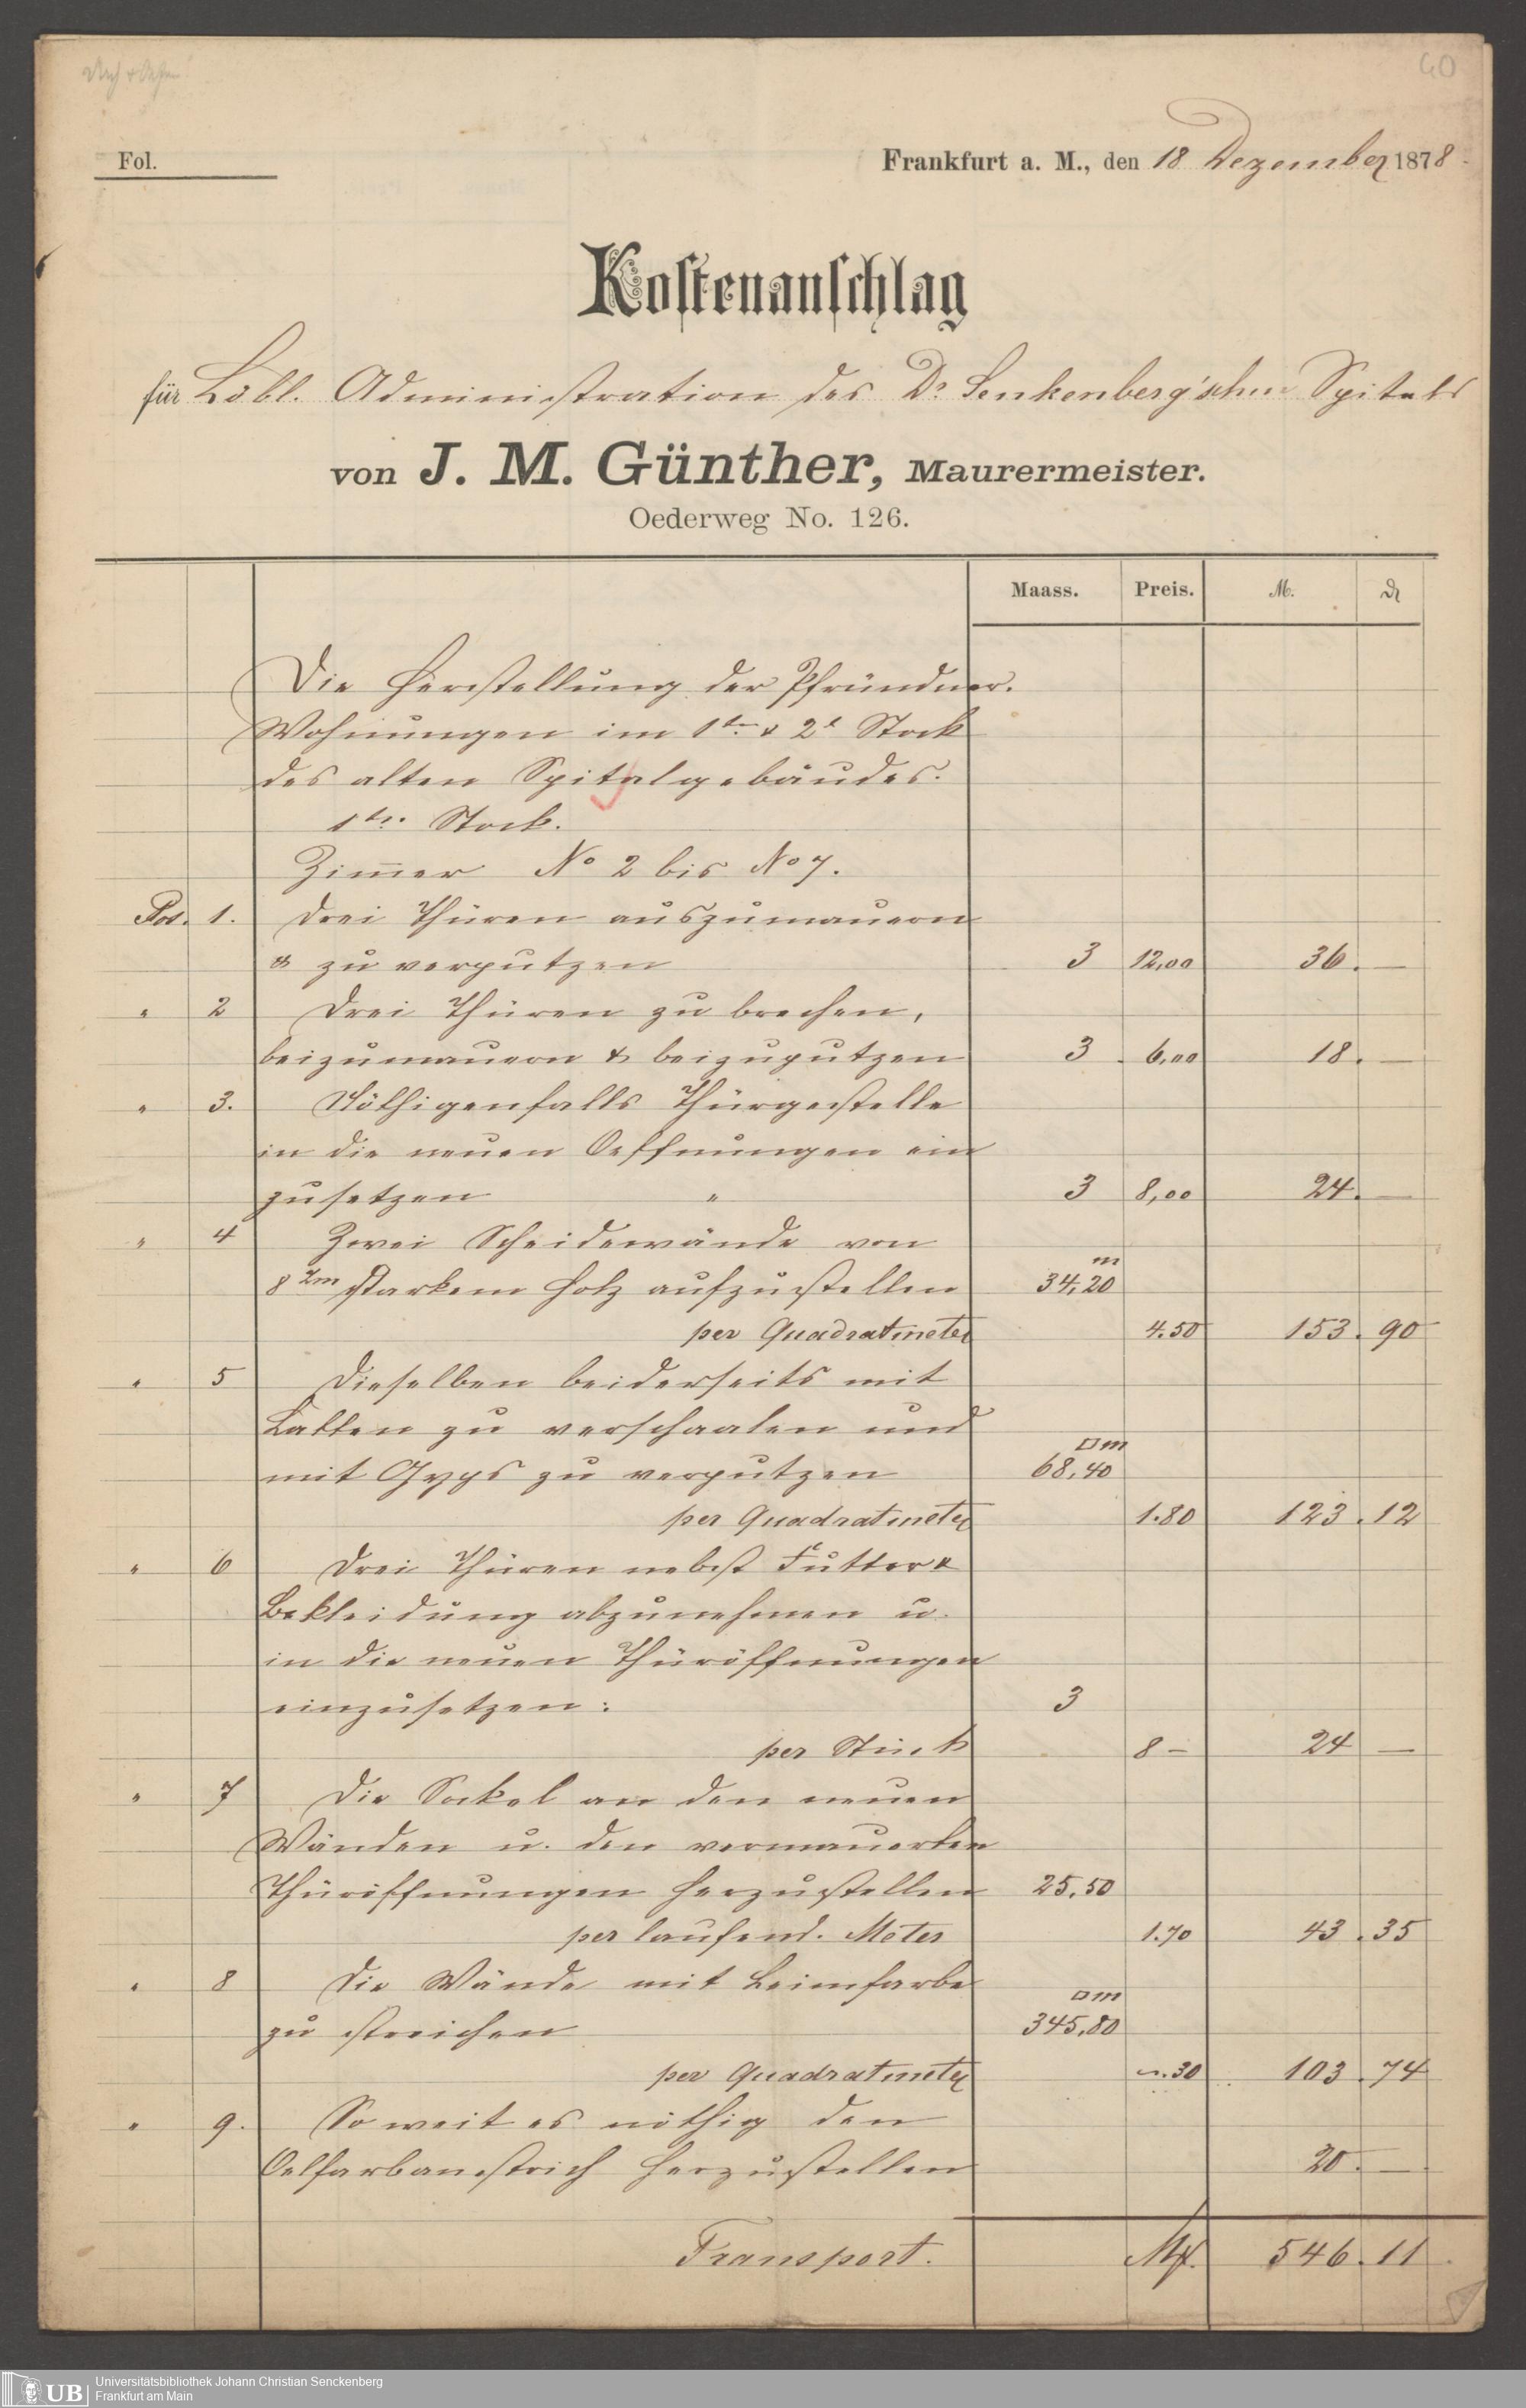 60
Fol.
Frankfurt a. M., den 18 Dezember 1878.
Kostenanschlag
für Löbl. Administration des Dr. Senkenberg'schen Spitals
von J. M. Günther, Maurermeister.
Oederweg No. 126.
Maass. Preis. M. ₰
Die Herstellung der Pfründner.
Wohnungen im 1ten & 2t Stock
des alten Spitalgebäudes.
1ter Stock.
Zimmer No 2 bis No 7.
Pos. 1. Drei Thüren auszumauern
& zu verputzen 3 12,00 36. —
" 2 Drei Thüren zu brechen,
beizumauern & beizuputzen 3 6,00 18. —
" 3. Nöthigenfalls Thürgestelle
in die neuen Oeffnungen ein
zusetzen " 3 8,00 24. —
" 4 Zwei Scheidewände von
8 zm starkem Holz aufzustellen m 34,20
per Quadratmeter 4.50 153. 90
" 5 Dieselben beiderseits mit
Latten zu verschaalen und
mit Gyps zu verputzen □m 68,40
per Quadratmeter 1.80 123. 12
" 6 Drei Thüren nebst Futter &
Bekleidung abzunehmen u.
in die neuen Thüröffnungen
einzusetzen: 3
per Stück 8 — 24 —
" 7 Die Sockel an den neuen
Wänden u. den vermauerten
Thüröffnungen herzustellen 25,50
per laufend. Meter 1.70 43. 35
" 8 Die Wände mit Leimfarbe
zu streichen □m 345,80
per Quadratmeter ~.30 103. 74
" 9. So weit es nöthig den
Oelfarbanstrich herzustellen 20. —
Transport. Mk. 546. 11
UB Universitätsbibliothek Johann Christian Senckenberg
Frankfurt am Main